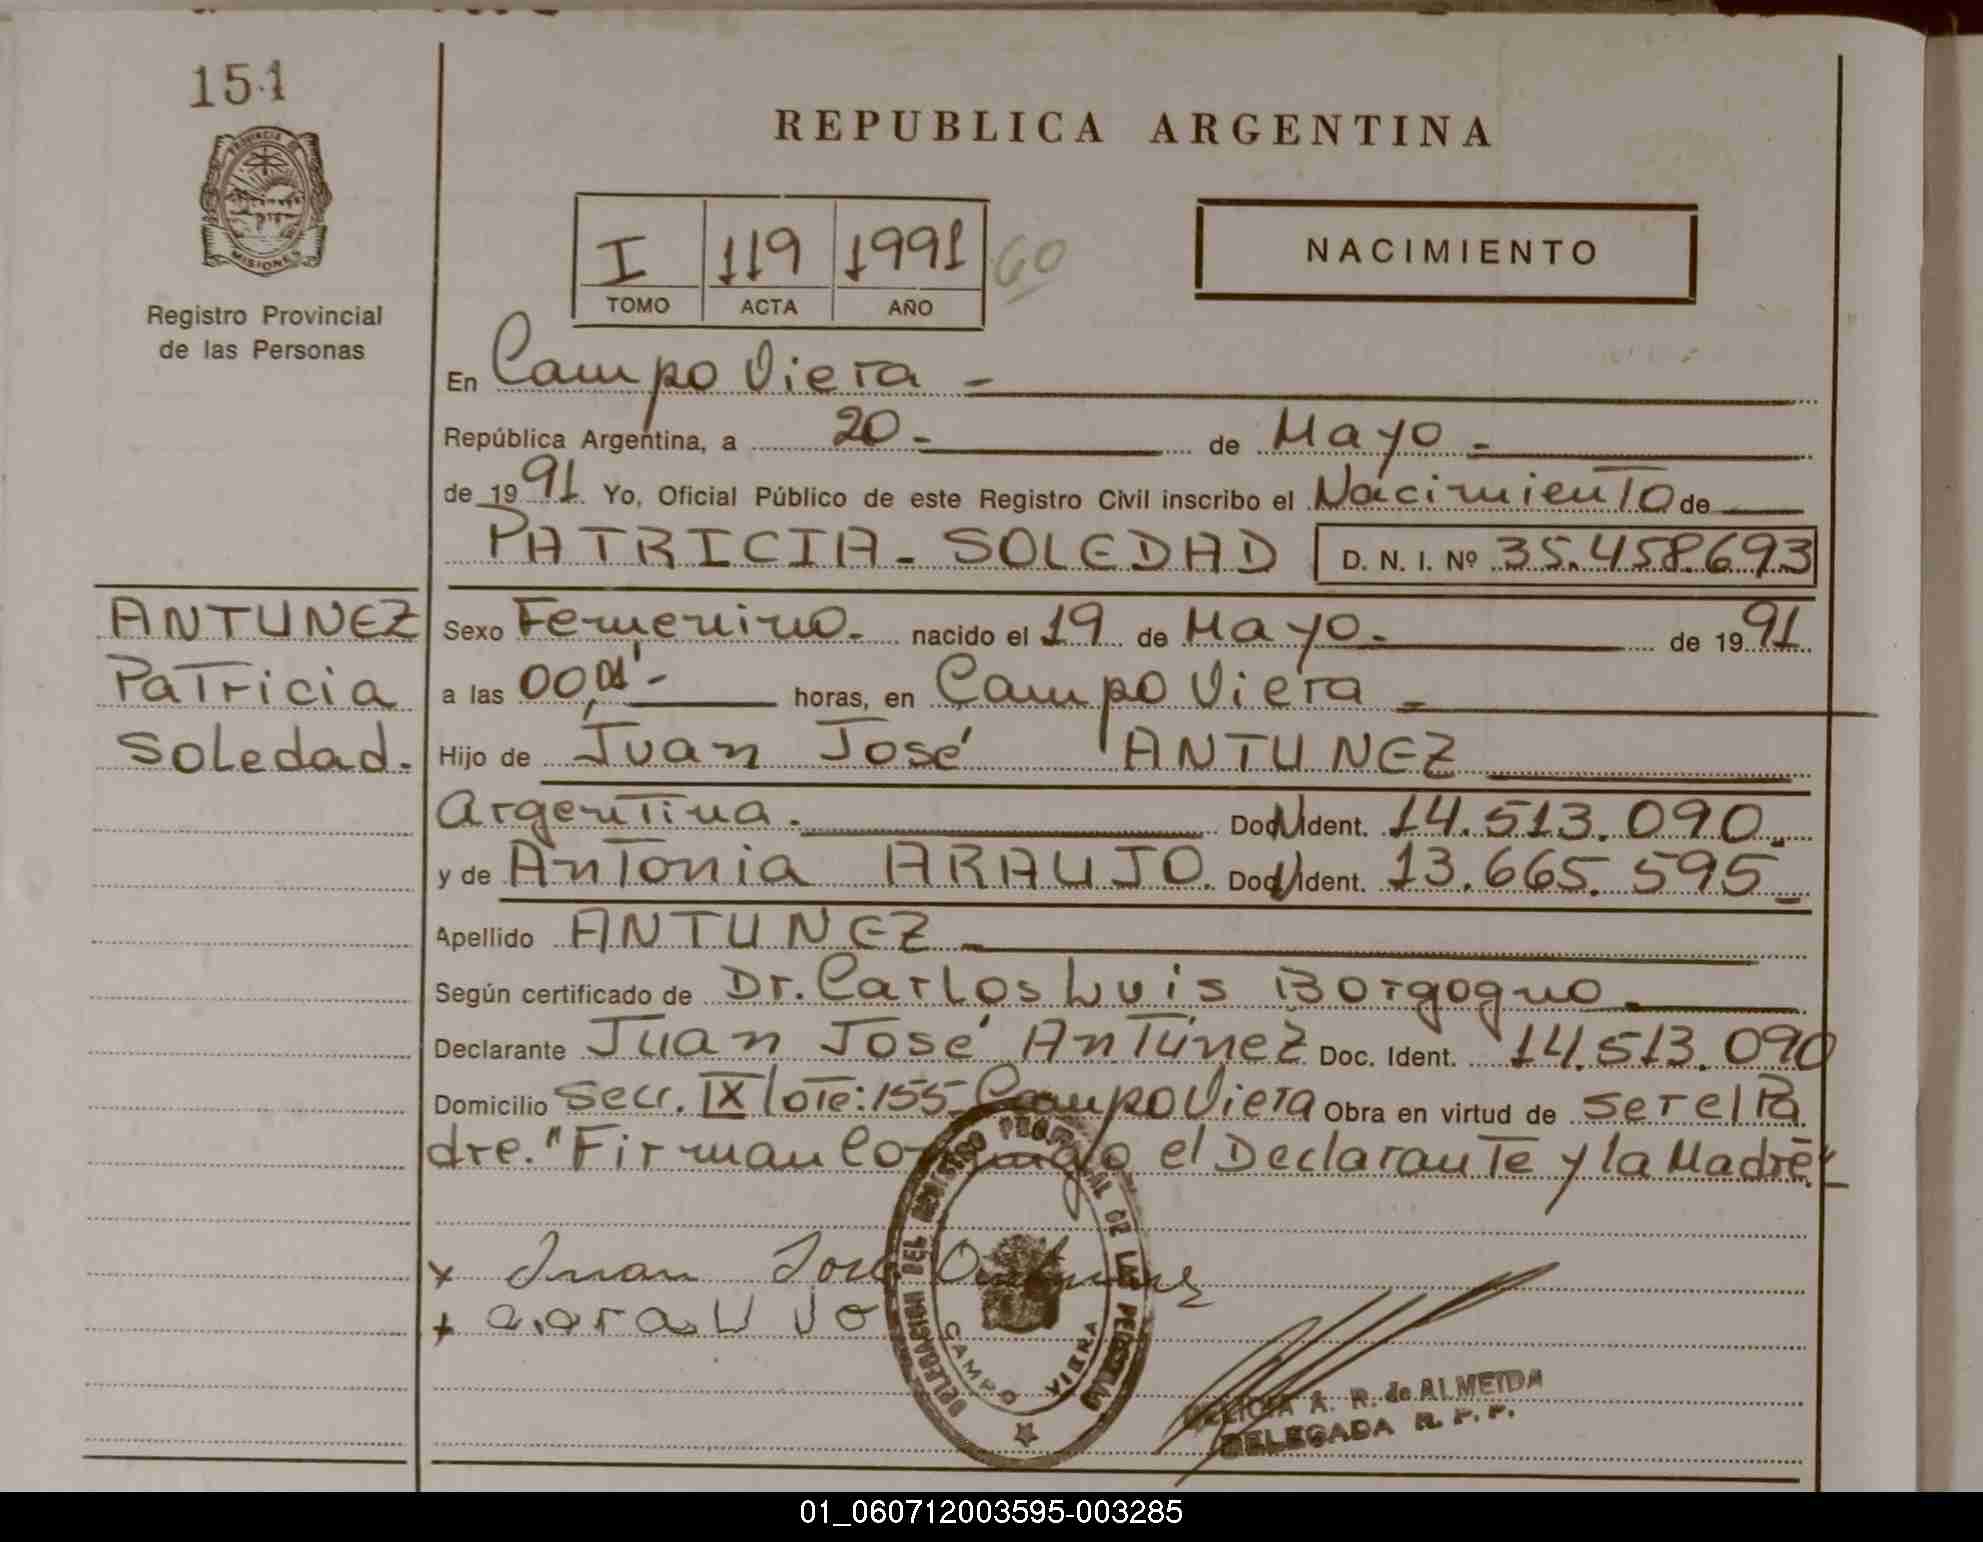 151
PROVINCIA DE
MISIONES
Registro Provincial
de las Personas
REPUBLICA ARGENTINA
I 119 1991 60
TOMO ACTA AÑO
NACIMIENTO
En Campo Viera -
República Argentina, a 20 - de Mayo -
de 1991 Yo, Oficial Público de este Registro Civil inscribo el Nacimiento de
PATRICIA - SOLEDAD D. N. I. Nº 35.458.693
ANTUNEZ
Patricia
Soledad.
Sexo Femenino. nacido el 19 de Mayo. de 1991
a las horas, en Campo Viera -
Hijo de Juan José ANTUNEZ
Argentina. Doc. Ident. 14.513.090_
y de Antonia ARAUJO. Doc. Ident. 13.665.595_
Apellido ANTUNEZ -
Según certificado de Dr. Carlos Luis Borgogno
Declarante Juan José Antúnez Doc. Ident. 14.513.090
Domicilio Secc. IX lote: 155 Campo Viera Obra en virtud de ser el Pa
dre. "Firman Conmigo el Declarante y la Madre"
x Juan José Antunez
x a. araujo
DELEGACION DEL REGISTRO PROVINCIAL DE LAS PERSONAS
CAMPO VIERA
A. R. de ALMEIDA
DELEGADA R. P. P.
01_060712003595-003285